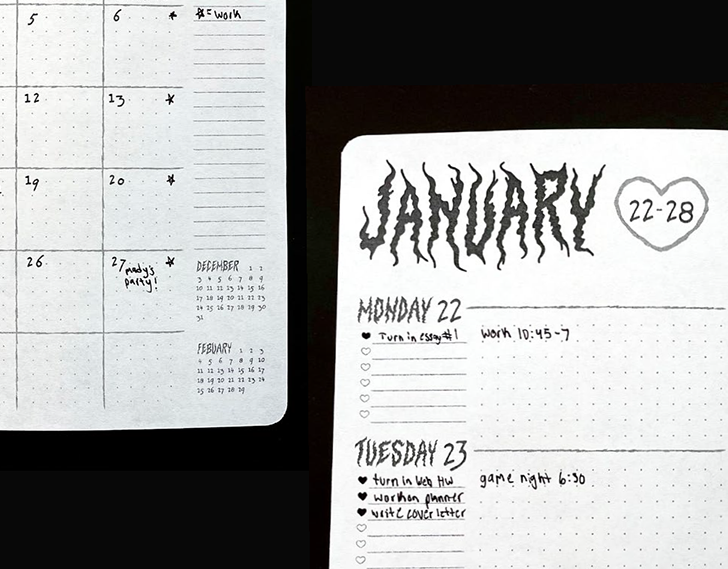 5 6 ☆
☆= work
12 13 ☆
19 20 ☆
26 27 mady's ☆
party!
DECEMBER 1 2
3 4 5 6 7 8 9
10 11 12 13 14 15 16
17 18 19 20 21 22 23
24 25 26 27 28 29 30
31
FEBUARY 1 2 3
4 5 6 7 8 9 10
11 12 13 14 15 16 17
18 19 20 21 22 23 24
25 26 27 28 29
JANUARY 22-28
MONDAY 22
♥ Turn in essay #1 work 10:45-7
TUESDAY 23
♥ turn in Web HW game night 6:30
♥ work on planner
♥ write cover letter